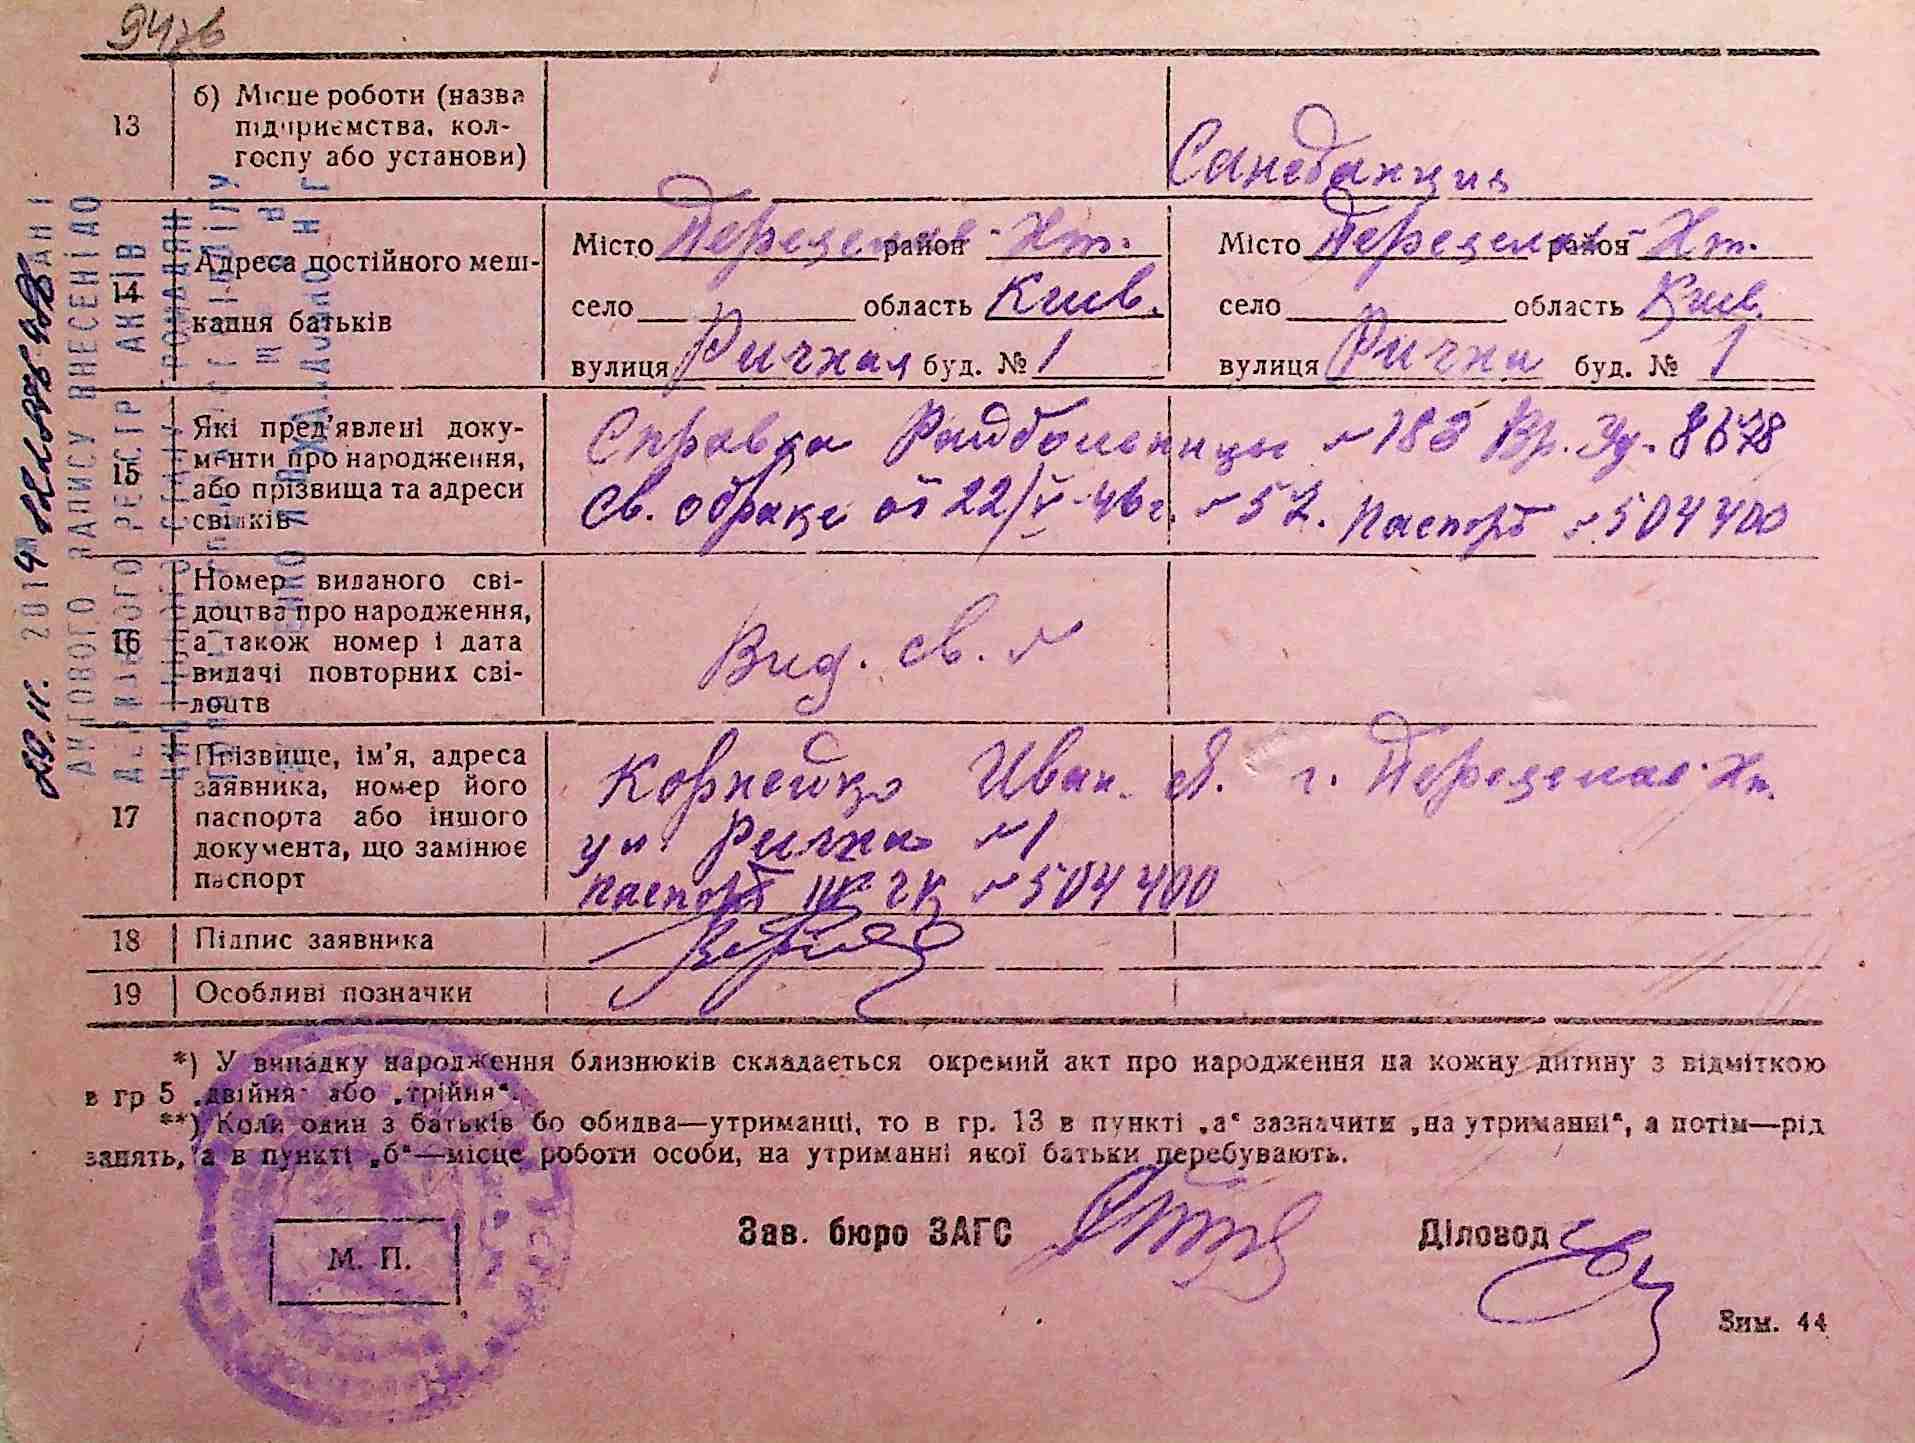 13
б) Місце роботи (назва
підприємства, кол-
госпу або установи)
Санстанция
14
Адреса постійного меш-
кання батьків
Місто Переяслав район - Хм.
село область Киев.
вулиця Ричная буд. № 1
Місто Переяслав район - Хм.
село область Киев.
вулиця Рична буд. № 1
15
Які пред'явлені доку-
менти про народження,
або прізвища та адреси
свідків
Справка Райбольницы № 183 Вр. Уд. 8678
Св. о браке от 22/V-46 г. № 57. Паспорт № 504400
16
Номер виданого сві-
доцтва про народження,
а також номер і дата
видачі повторних сві-
доцтв
Вид. св. №
17
Прізвище, ім'я, адреса
заявника, номер його
паспорта або іншого
документа, що замінює
паспорт
Корнейко Иван. г. Переяслав-Хм.
ул Ричная № 1
паспорт № 504400
18
Підпис заявника
19
Особливі позначки
*) У випадку народження близнюків складається окремий акт про народження на кожну дитину з відміткою
в гр 5 „двійня" або „трійня".
**) Коли один з батьків бо обидва—утриманці, то в гр. 13 в пункті „а" зазначити „на утриманні", а потім—рід
занять, а в пункті „б"—місце роботи особи, на утриманні якої батьки перебувають.
М. П.
Зав. бюро ЗАГС
Діловод
Зим. 44
АКТОВОГО ЗАПИСУ ВНЕСЕНІ ДО